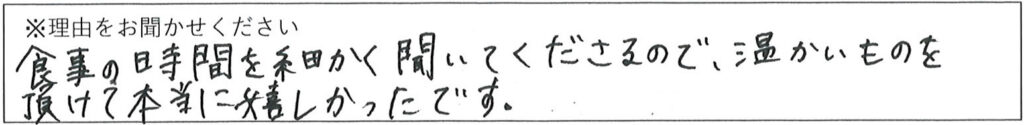 ※理由をお聞かせください
食事の時間を細かく聞いてくださるので、温かいものを
頂けて本当に嬉しかったです。